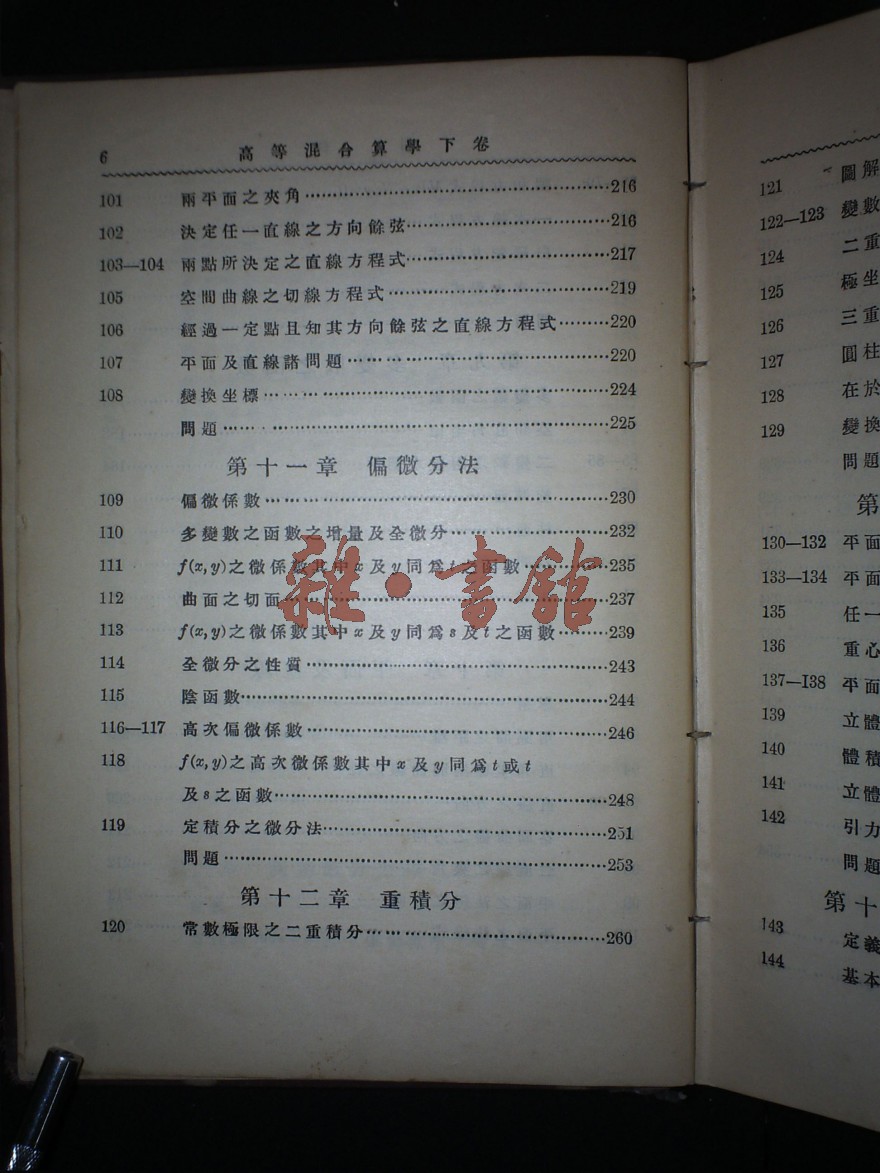 6 高等混合算學下卷
101 兩平面之夾角………216
102 決定任一直線之方向餘弦………216
103—104 兩點所決定之直線方程式………217
105 空間曲線之切線方程式………219
106 經過一定點且知其方向餘弦之直線方程式………220
107 平面及直線諸問題………220
108 變換坐標………224
問題………225
第十一章 偏微分法
109 偏微係數………230
110 多變數之函數之增量及全微分………232
111 f(x,y)之微係數其中x及y同爲t之函數………235
112 曲面之切面………237
113 f(x,y)之微係數其中x及y同爲s及t之函數………239
114 全微分之性質………243
115 陰函數………244
116—117 高次偏微係數………246
118 f(x,y)之高次微係數其中x及y同爲t或t
及s之函數………248
119 定積分之微分法………251
問題………253
第十二章 重積分
120 常數極限之二重積分………260
雜·書館
121 圖解
122—123 變數
124 二重
125 極坐
126 三重
127 圓柱
128 在於
129 變換
問題
第
130—132 平面
133—134 平面
135 任一
136 重心
137—138 平面
139 立體
140 體積
141 立體
142 引力
問題
第十
143 定義
144 基本